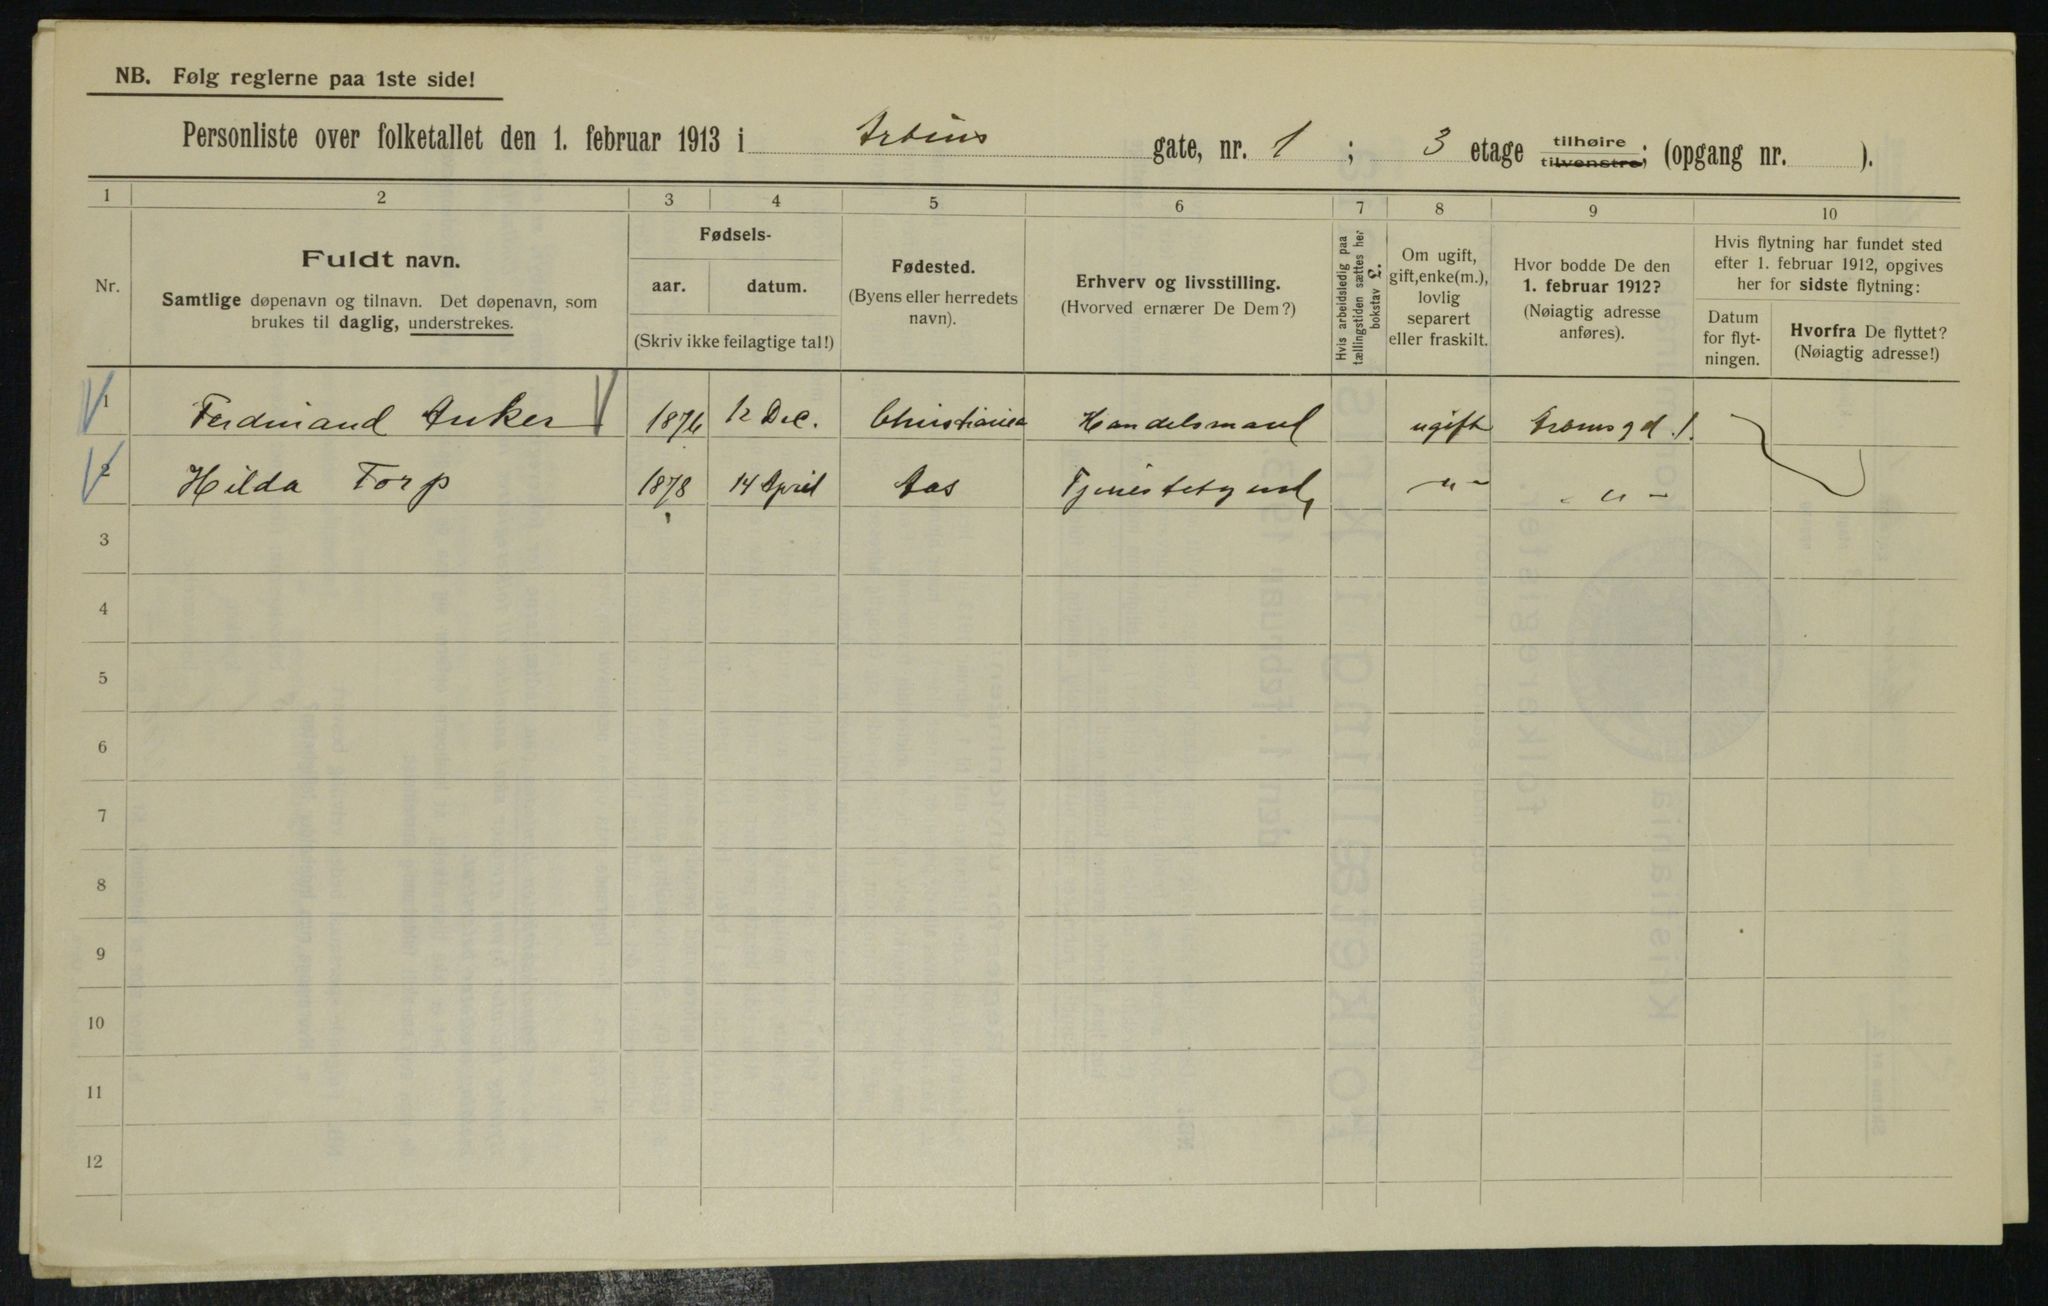 NB. Følg reglerne paa 1ste side!
Personliste over folketallet den 1. februar 1913 i Arbins gate, nr. 1 ; 3 etage tilhøire tilvenstre; (opgang nr. ).
1 2 3 4 5 6 7 8 9 10
Nr.
Fuldt navn.
Samtlige døpenavn og tilnavn. Det døpenavn, som
brukes til daglig, understrekes.
Fødsels-
aar. datum.
(Skriv ikke feilagtige tal!)
Fødested.
(Byens eller herredets
navn).
Erhverv og livsstilling.
(Hvorved ernærer De Dem?)
Hvis arbeidsledig paa
tællingstiden sættes her
bokstav L.
Om ugift,
gift, enke(m.),
lovlig
separert
eller fraskilt.
Hvor bodde De den
1. februar 1912?
(Nøiagtig adresse
anføres).
Hvis flytning har fundet sted
efter 1. februar 1912, opgives
her for sidste flytning:
Datum
for flyt-
ningen.
Hvorfra De flyttet?
(Nøiagtig adresse!)
1 Ferdinand Anker 1876 12 Dec. Christiania Handelsmand ugift
2 Hilda Torp 1878 14 April Aas -"- -"-
3
4
5
6
7
8
9
10
11
12